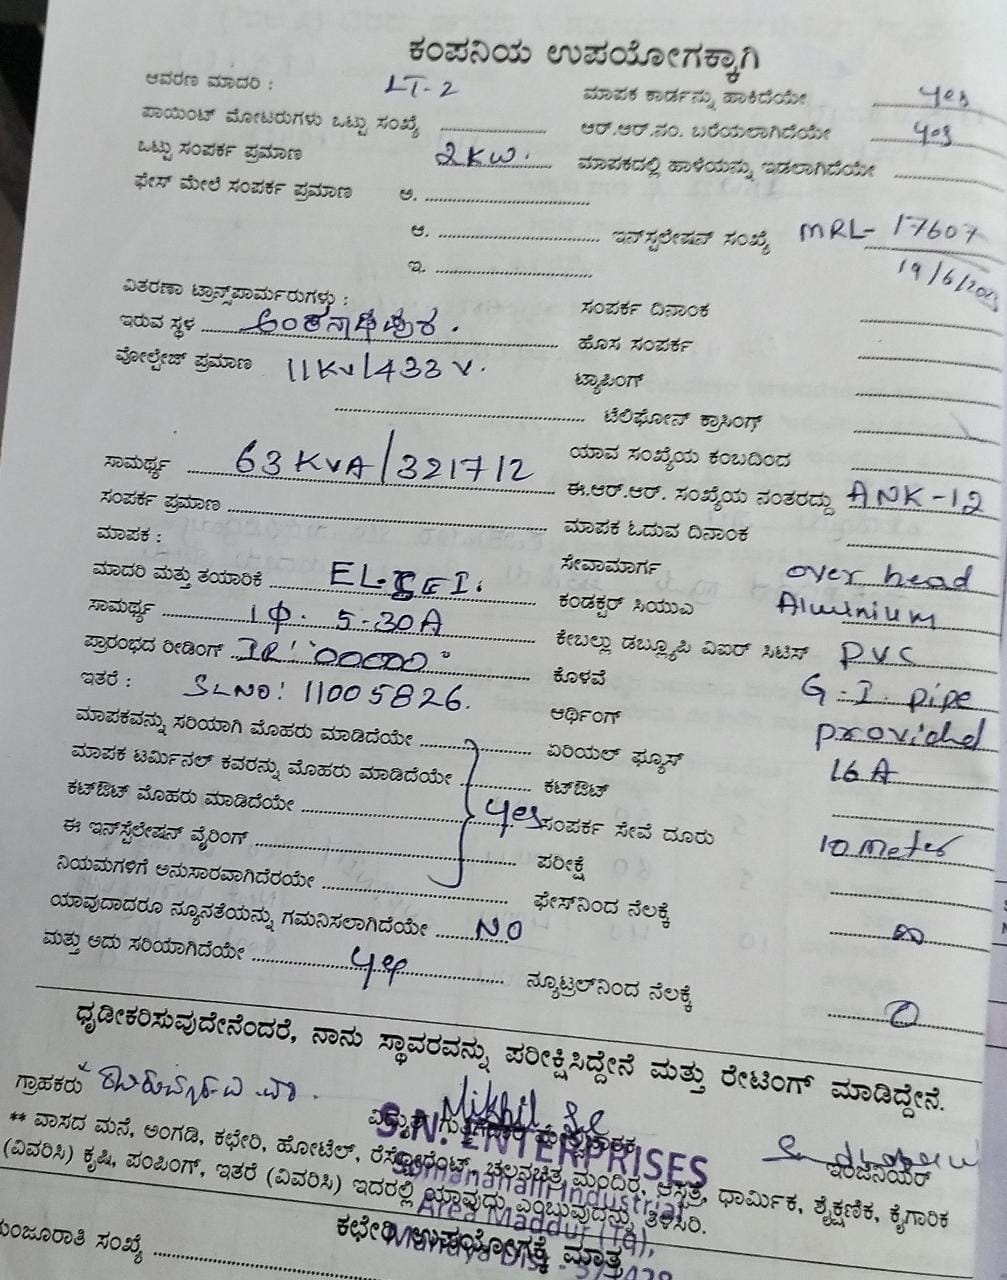 ಕಂಪನಿಯ ಉಪಯೋಗಕ್ಕಾಗಿ
ಆವರಣ ಮಾದರಿ : LT-2 ಮಾಪಕ ಕಾರ್ಡನ್ನು ಹಾಕಿದೆಯೇ yes
ಪಾಯಿಂಟ್ ಮೋಟರುಗಳು ಒಟ್ಟು ಸಂಖ್ಯೆ ಆರ್.ಆರ್.ನಂ. ಬರೆಯಲಾಗಿದೆಯೇ yes
ಒಟ್ಟು ಸಂಪರ್ಕ ಪ್ರಮಾಣ 2KW. ಮಾಪಕದಲ್ಲಿ ಹಾಳೆಯನ್ನು ಇಡಲಾಗಿದೆಯೇ
ಫೇಸ್ ಮೇಲೆ ಸಂಪರ್ಕ ಪ್ರಮಾಣ ಅ.
ಆ. ಇನ್‌ಸ್ಟಲೇಷನ್ ಸಂಖ್ಯೆ MRL-17607
ಇ. 19/6/2023
ವಿತರಣಾ ಟ್ರಾನ್ಸ್‌ಪಾರ್ಮರುಗಳು : ಸಂಪರ್ಕ ದಿನಾಂಕ
ಇರುವ ಸ್ಥಳ ಹೊಸ ಸಂಪರ್ಕ
ವೋಲ್ಟೇಜ್ ಪ್ರಮಾಣ 11KV/433 V. ಟ್ಯಾಪಿಂಗ್
ಟೆಲಿಫೋನ್ ಕ್ರಾಸಿಂಗ್
ಯಾವ ಸಂಖ್ಯೆಯ ಕಂಬದಿಂದ
ಸಾಮರ್ಥ್ಯ 63 KVA/321712 ಈ.ಆರ್.ಆರ್. ಸಂಖ್ಯೆಯ ನಂತರದ್ದು ANK-12
ಸಂಪರ್ಕ ಪ್ರಮಾಣ ಮಾಪಕ ಓದುವ ದಿನಾಂಕ
ಮಾಪಕ : ಸೇವಾಮಾರ್ಗ over head
ಮಾದರಿ ಮತ್ತು ತಯಾರಿಕೆ ಕಂಡಕ್ಟರ್ ಸಿಯುಎ Aluminium
ಸಾಮರ್ಥ್ಯ 1φ. 5-30A ಕೇಬಲ್ಲು ಡಬ್ಲ್ಯೂಪಿ ವಿಐರ್ ಸಿಟಿಸ್ PVC
ಪ್ರಾರಂಭದ ರೀಡಿಂಗ್ IR: 00000 ಕೊಳವೆ G.I. pipe
ಇತರೆ : SLNO: 11005826. ಆರ್ಥಿಂಗ್ provided
ಮಾಪಕವನ್ನು ಸರಿಯಾಗಿ ಮೊಹರು ಮಾಡಿದೆಯೇ ಏರಿಯಲ್ ಫ್ಯೂಸ್ 16 A
ಮಾಪಕ ಟರ್ಮಿನಲ್ ಕವರನ್ನು ಮೊಹರು ಮಾಡಿದೆಯೇ ಕಟ್‌ಔಟ್
ಕಟ್‌ಔಟ್ ಮೊಹರು ಮಾಡಿದೆಯೇ yes ಸಂಪರ್ಕ ಸೇವೆ ದೂರು 10 meter
ಈ ಇನ್‌ಸ್ಪೆಲೇಷನ್ ವೈರಿಂಗ್ ಪರೀಕ್ಷೆ
ನಿಯಮಗಳಿಗೆ ಅನುಸಾರವಾಗಿದೆರಯೇ ಫೇಸ್‌ನಿಂದ ನೆಲಕ್ಕೆ
ಯಾವುದಾದರೂ ನ್ಯೂನತೆಯನ್ನು ಗಮನಿಸಲಾಗಿದೆಯೇ NO
ಮತ್ತು ಅದು ಸರಿಯಾಗಿದೆಯೇ ನ್ಯೂಟ್ರಲ್‌ನಿಂದ ನೆಲಕ್ಕೆ
ಧೃಡೀಕರಿಸುವುದೇನೆಂದರೆ, ನಾನು ಸ್ಥಾವರವನ್ನು ಪರೀಕ್ಷಿಸಿದ್ದೇನೆ ಮತ್ತು ರೇಟಿಂಗ್ ಮಾಡಿದ್ದೇನೆ.
ಗ್ರಾಹಕರು ವಿದ್ಯುತ್ ಗುತ್ತಿಗೆದಾರ ಇಂಜಿನಿಯರ್
S.N. ENTERPRISES
Somanahalli Industrial
Area Maddur (Tq),
** ವಾಸದ ಮನೆ, ಅಂಗಡಿ, ಕಛೇರಿ, ಹೋಟೆಲ್, ರೆಸ್ಟೋರೆಂಟ್, ಚಲನಚಿತ್ರ ಮಂದಿರ, ಆಸ್ಪತ್ರೆ, ಧಾರ್ಮಿಕ, ಶೈಕ್ಷಣಿಕ, ಕೈಗಾರಿಕ
(ವಿವರಿಸಿ) ಕೃಷಿ, ಪಂಪಿಂಗ್, ಇತರೆ (ವಿವರಿಸಿ) ಇದರಲ್ಲಿ ಯಾವುದು ಎಂಬುವುದನ್ನು ತಿಳಿಸಿರಿ.
ಕಛೇರಿ ಉಪಯೋಗಕ್ಕೆ ಮಾತ್ರ
ಮಂಜೂರಾತಿ ಸಂಖ್ಯೆ